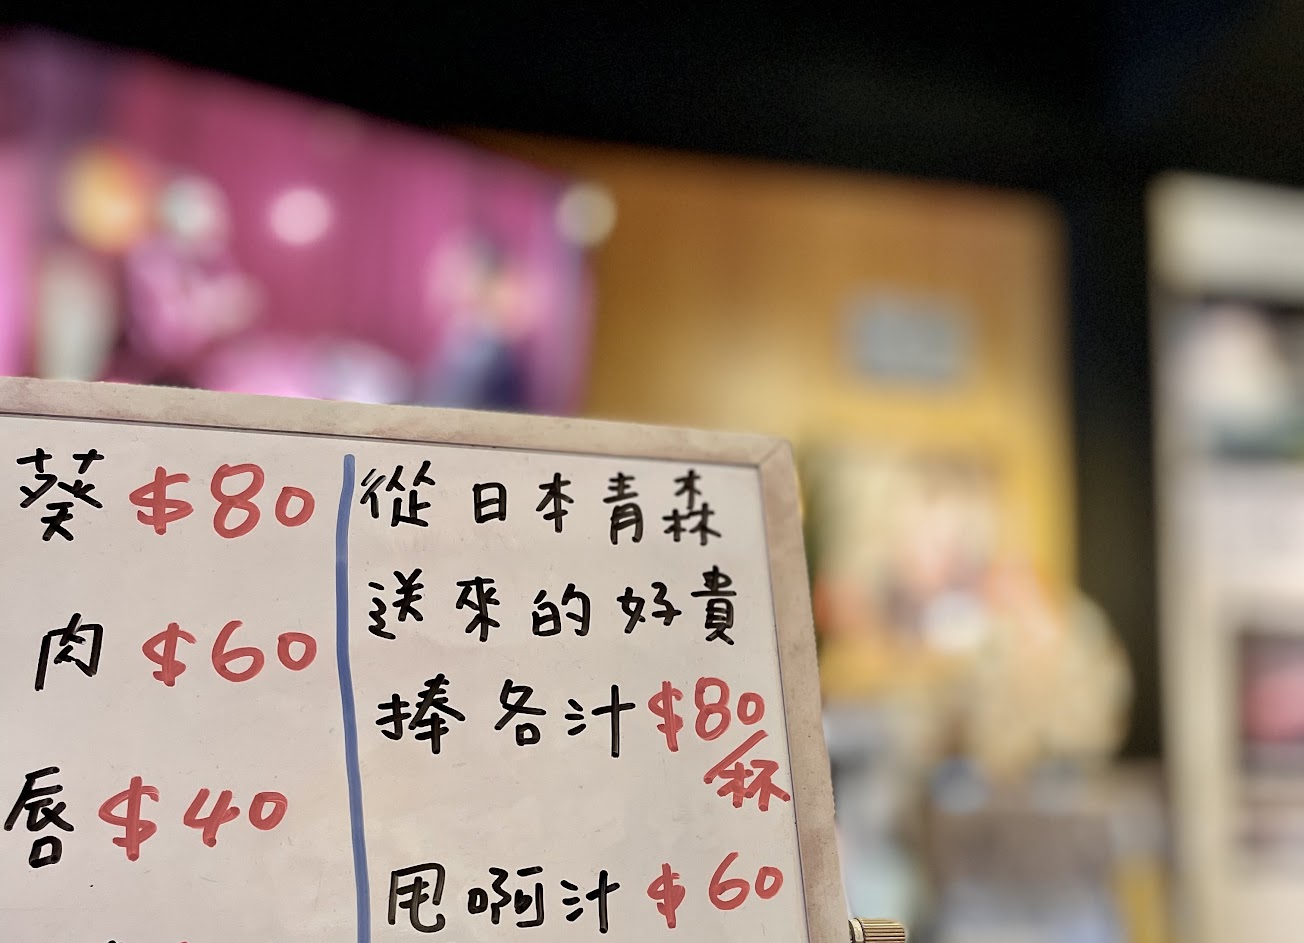 葵 $80
肉 $60
唇 $40
從日本青森
送來的好貴
捧各汁 $80
/杯
甩啊汁 $60